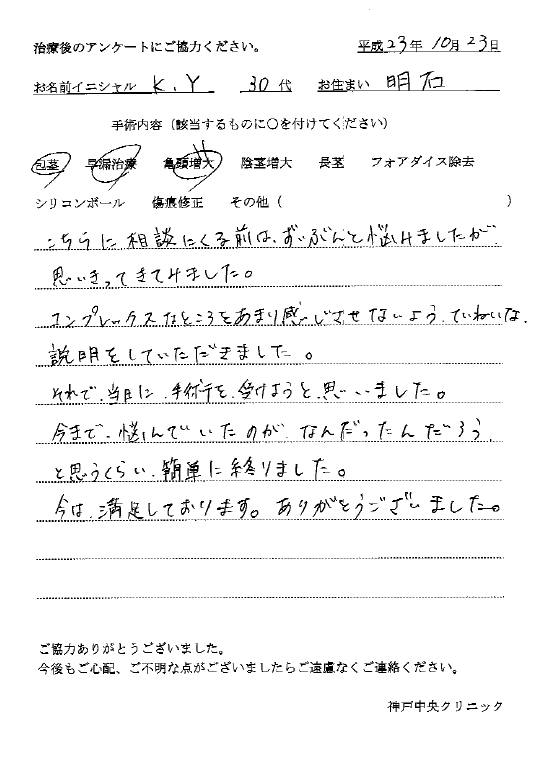 治療後のアンケートにご協力ください。
平成23年10月23日
お名前イニシャル K.Y 30代 お住まい 明石
手術内容（該当するものに○を付けてください）
包茎 早漏治療 亀頭増大 陰茎増大 長茎 フォアダイス除去
シリコンボール 傷痕修正 その他（ ）
こちらに相談にくる前は、ずいぶんと悩みましたが、
思いきってきてみました。
コンプレックスなところをあまり感じさせないよう、ていねいな、
説明をしていただきました。
それで、当日に、手術を、受けようと、思いました。
今まで、悩んでいたのが、なんだったんだろう、
と思うくらい、簡単に終りました。
今は、満足しております。ありがとうございました。
ご協力ありがとうございました。
今後もご心配、ご不明な点がございましたらご遠慮なくご連絡ください。
神戸中央クリニック